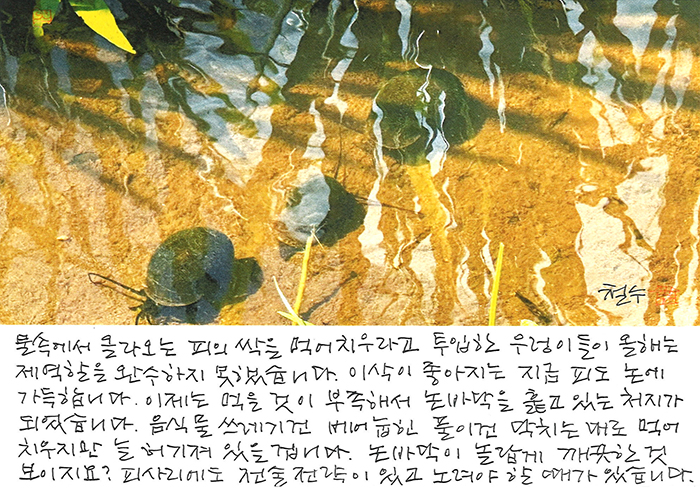 철수
물속에서 올라오는 피의 싹을 먹어치우라고 투입한 우렁이들이 올해는
제역할을 완수하지 못했습니다. 이삭이 좋아지는 지금 피도 논에
가득합니다. 이제는 먹을 것이 부족해서 논바닥을 훑고 있는 처지가
되었습니다. 음식물 쓰레기건 베어눕힌 풀이건 닥치는 대로 먹어
치우지만 늘 허기져 있을겁니다. 논바닥이 놀랍게 깨끗한 것
보이지요? 피사리에도 전술전략이 있고 노려야 할 때가 있습니다.